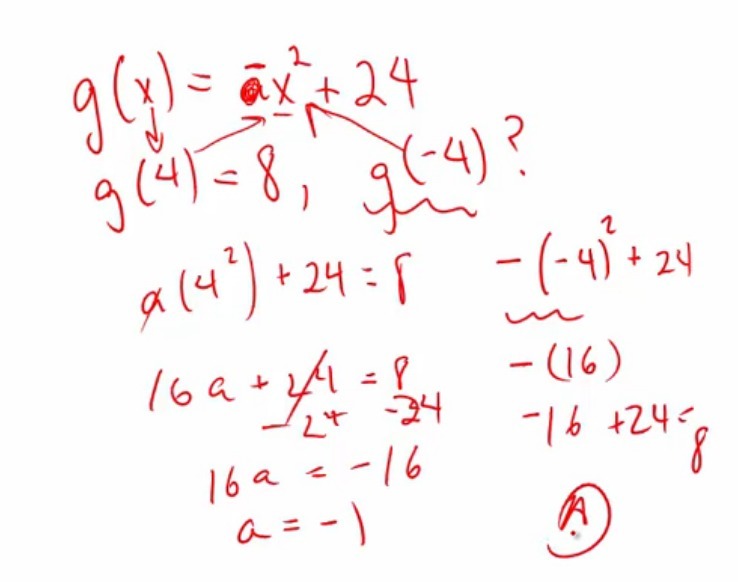 g(x) = ax² + 24
g(4) = 8, g(-4)?
a(4²) + 24 = 8
16a + 24 = 8
-24 -24
16a = -16
a = -1
-(-4)² + 24
-(16)
-16 + 24 = 8
A